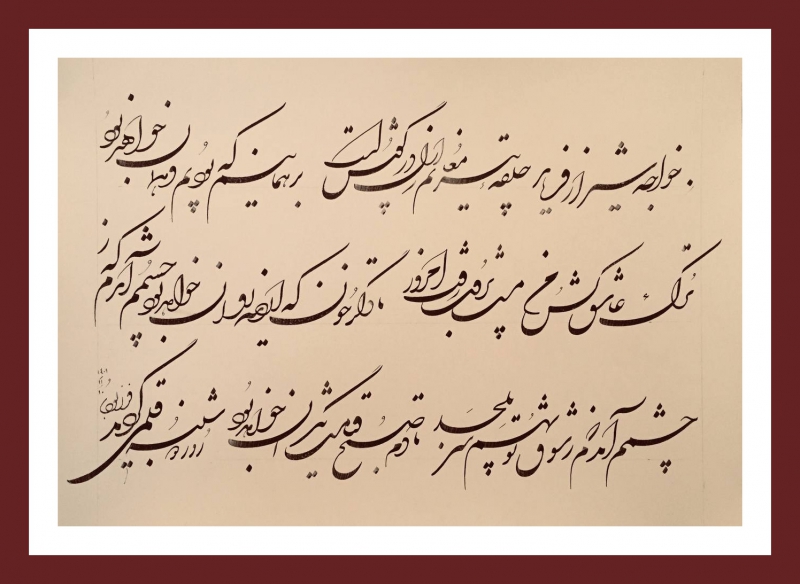 خواجه شیراز فرماید حلقه پیر مغانم از ازل در گوش است بر همانیم که بودیم و همان خواهد بود
ترک عاشق کش من مست برون رفت امروز تا دگر خون که از دیده روان خواهد بود چشمم آندم که ز
چشمم آندم که ز شوق تو نهم سر بلحد تا دم صبح قیامت نگران خواهد بود شنبه قلمی